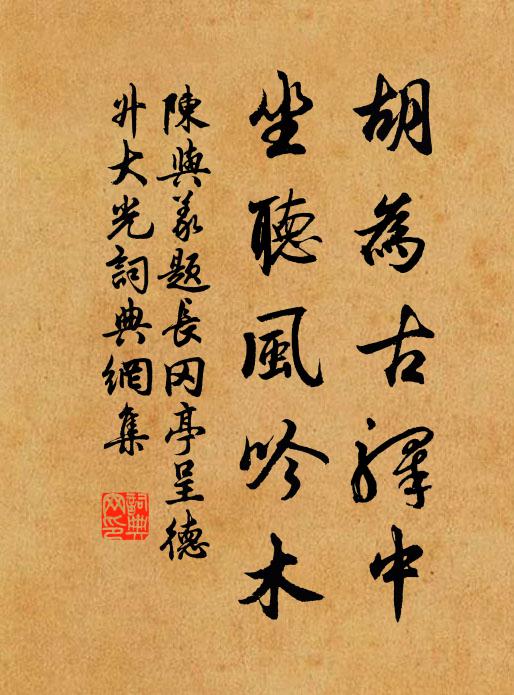 胡為古驛中
坐聽風吟木
陳與義題長岡亭呈德
升大光詞典網集
詞典網印